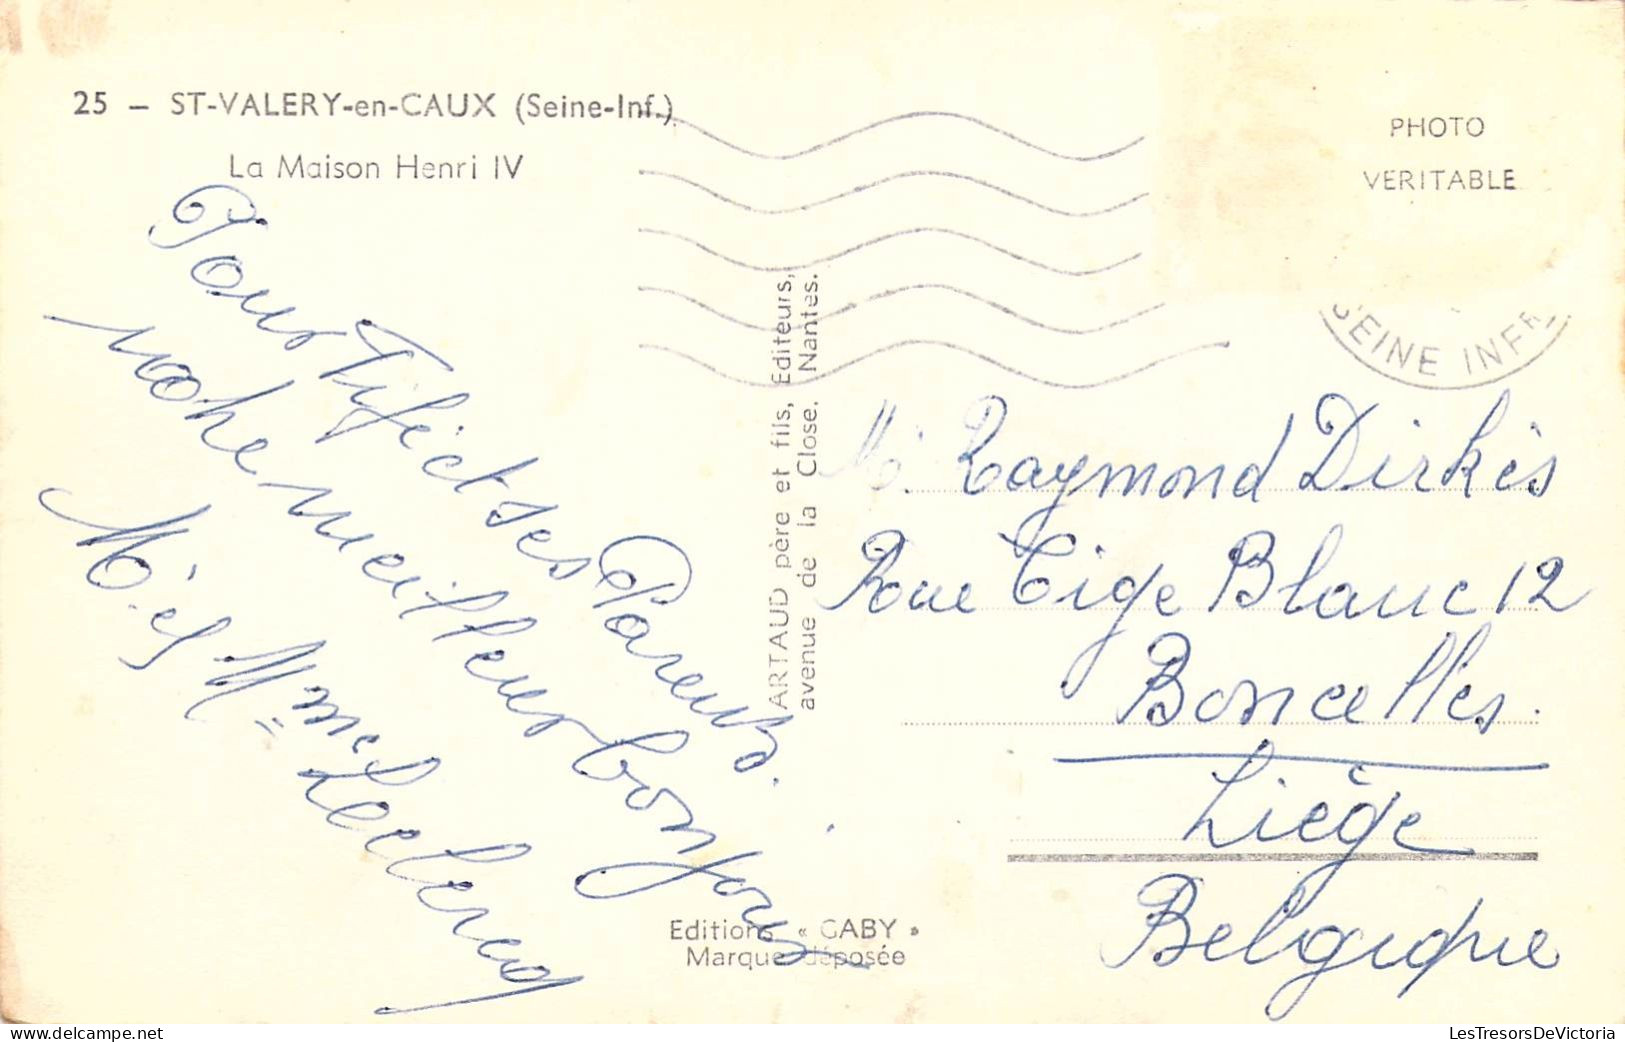 25 — ST-VALERY-en-CAUX (Seine-Inf.)
La Maison Henri IV
PHOTO
VERITABLE
SEINE INFRE
Pour Fifi et ses Parents.
notre meilleur bonjour
Mr. et Mme Leclercq
ARTAUD père et fils, Editeurs,
avenue de la Close. Nantes.
Mr. Raymond Dirkès
Rue Tige Blanc 12
Boncelles.
Liège
Belgique
Editions « GABY »
Marque déposée
LesTresorsDeVictoria
www.delcampe.net